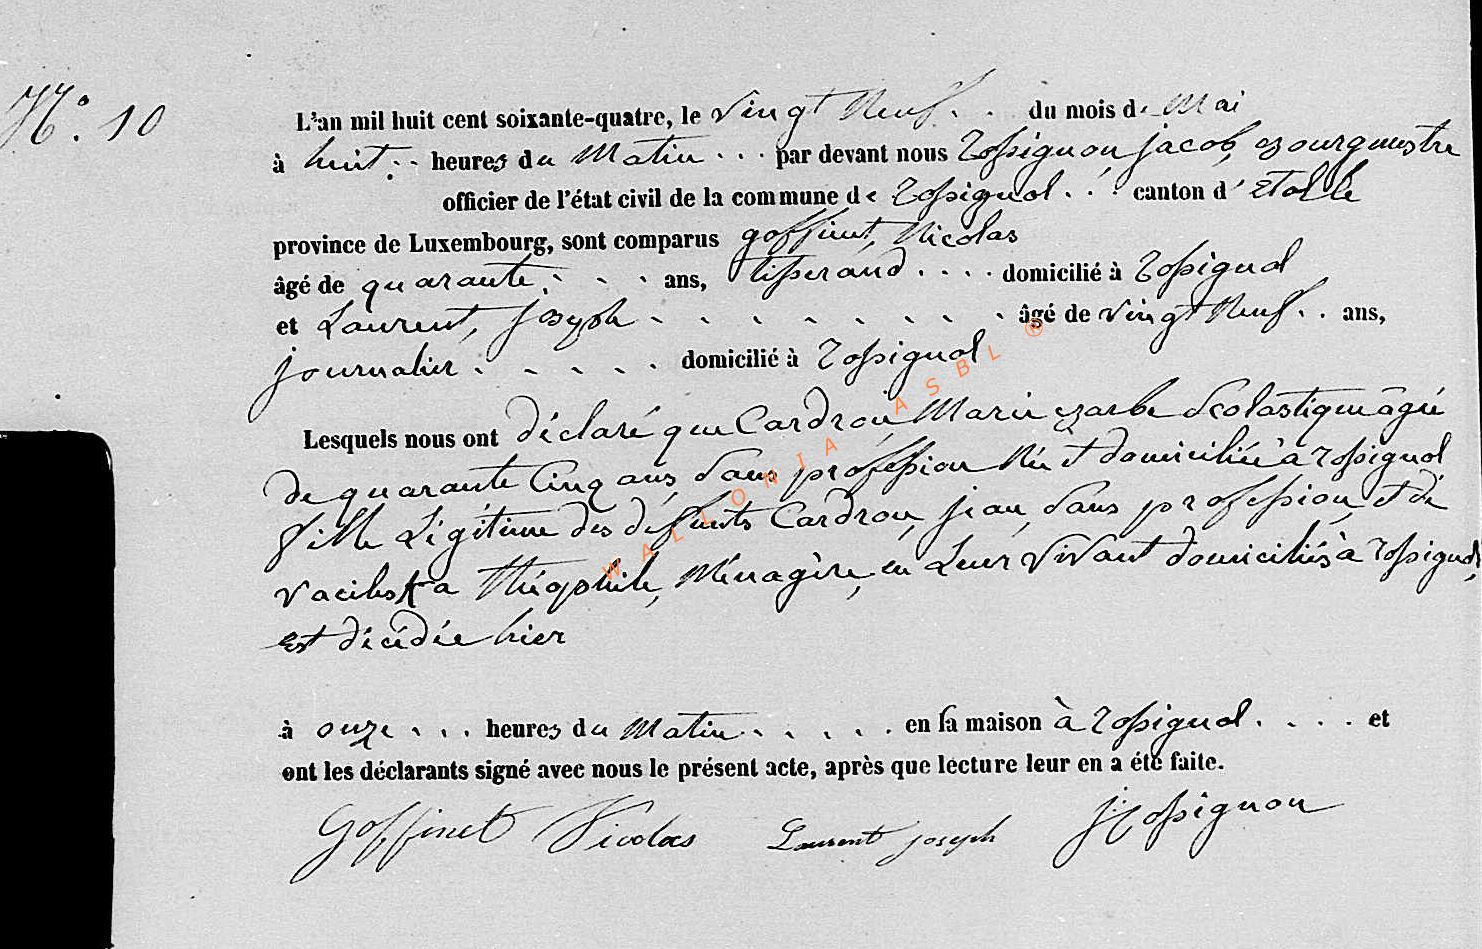 N.° 10
L'an mil huit cent soixante-quatre, le vingt Neuf . . du mois de Mai
à huit . . heures du Matin . . . par devant nous Rossignon, jacob, Bourgmestre
officier de l'état civil de la commune de Rossignol . . . canton d' Etalle
province de Luxembourg, sont comparus goffinet, Nicolas
âgé de quarante . . . ans, tisserand . . . . domicilié à Rossignol
et Laurent, joseph . . . . . . . . . âgé de vingt Neuf . . ans,
journalier . . . . . domicilié à Rossignol
Lesquels nous ont déclaré que Cardron, Marie Barbe Scolastique âgée
de quarante Cinq ans, Sans profession Née et domiciliée à Rossignol
fille Légitime des défunts Cardron, jean, Sans profession, et de
a Théophile, Ménagère, en Leur vivant domiciliés à Rossignol,
Est décédée hier
à onze . . . heures du Matin . . . . . en sa maison à Rossignol . . . . et
ont les déclarants signé avec nous le présent acte, après que lecture leur en a été faite.
Goffinet Nicolas Laurent joseph J. Rossignon
WALLONIA ASBL ®